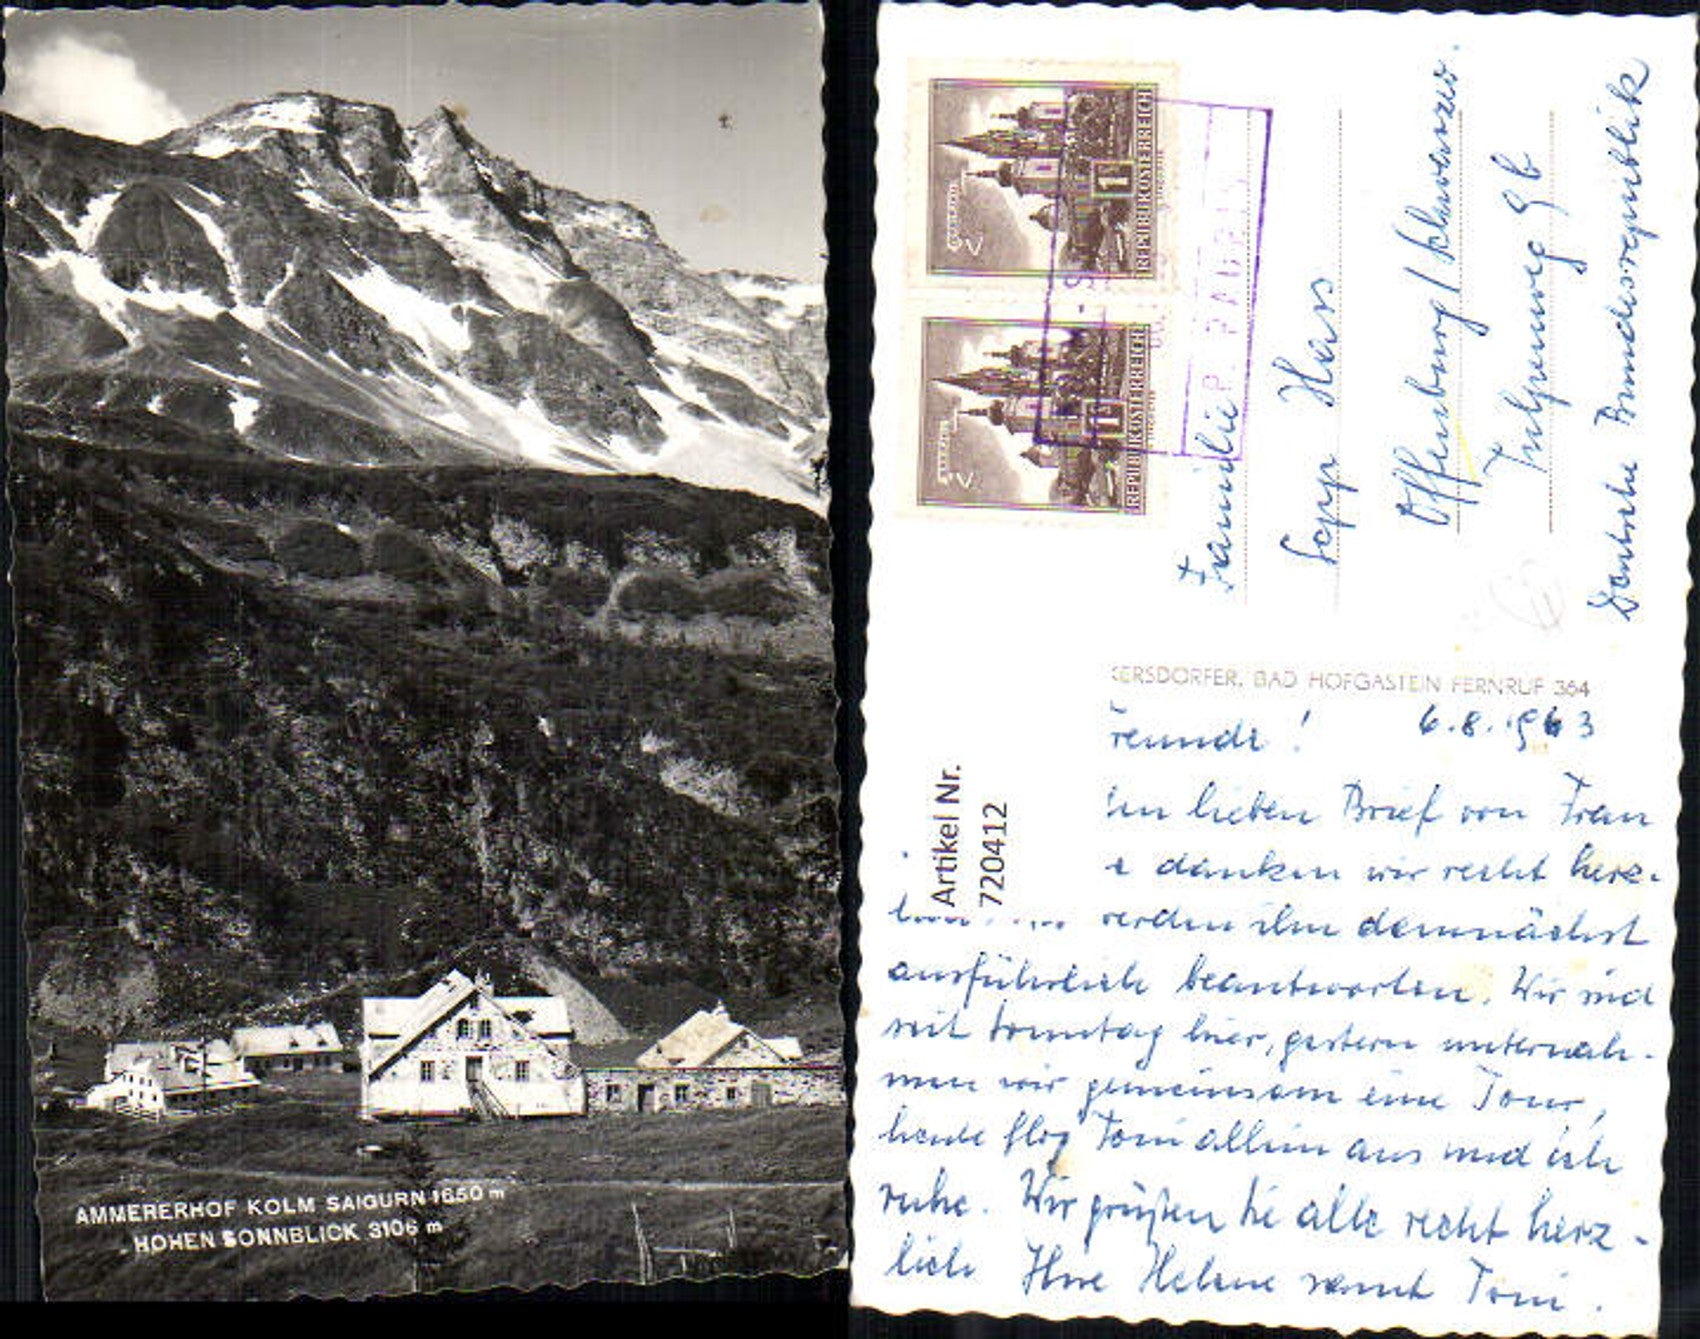 AMMERERHOF KOLM SAIGURN 1650 m
HOHEN SONNBLICK 3106 m
REPUBLIK ÖSTERREICH
1
REPUBLIK ÖSTERREICH
1
Familie
Sepp Haas
Offenburg / Schwarzw.
9b
Deutsche Bundesrepublik
ERSDORFER, BAD HOFGASTEIN FERNRUF 364
6.8.1963
reunde!
Artikel Nr.
720412
en lieben Brief von Frau
e danken wir recht herz-
werden ihn demnächst
ausführlich beantworten. Wir sind
seit Sonntag hier, gestern unternah-
men wir gemeinsam eine Tour,
heute flog Toni allein aus und ich
ruhe. Wir grüßen Sie alle recht herz-
lich Ihre Helene samt Toni.